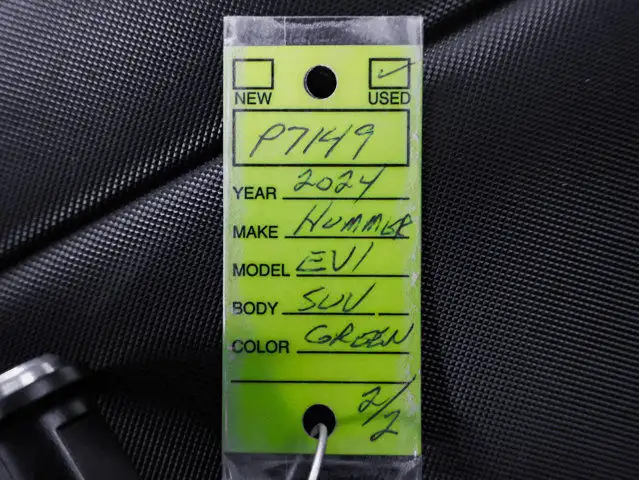 NEW USED
P7149
YEAR 2024
MAKE HUMMER
MODEL EV1
BODY SUV
COLOR GREEN
2/2